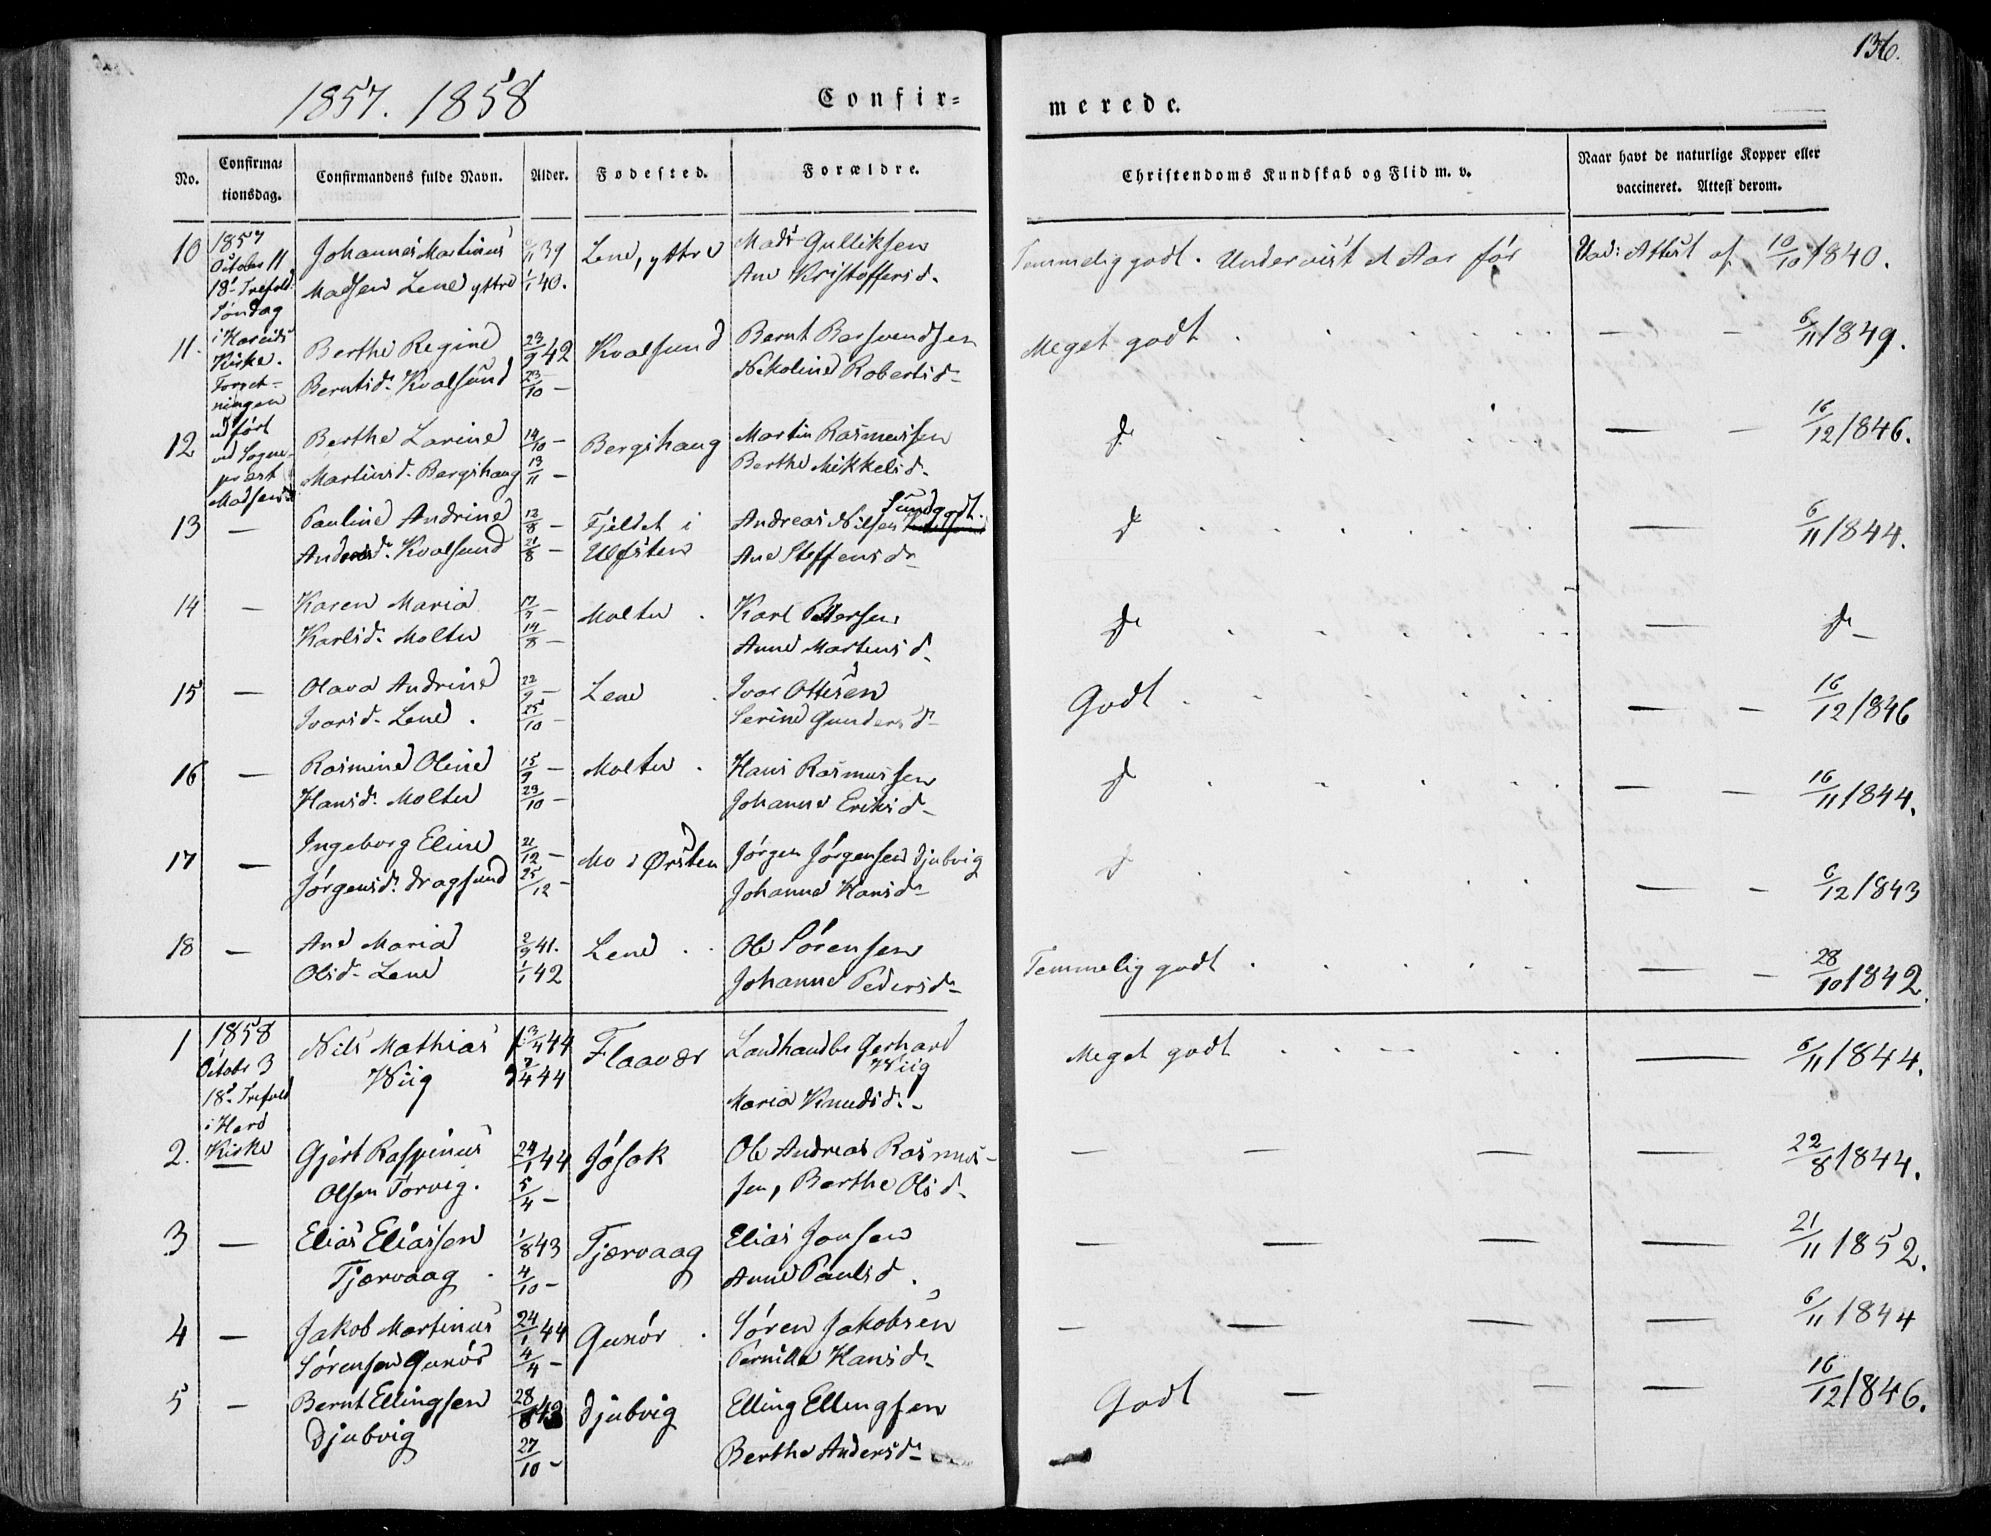 136.
1857. 1858
Confir=
merede.
No.
Confirma=
tionsdag.
Confirmandens fulde Navn.
Alder.
Fødested.
Forældre.
Christendoms Kundskab og Flid m. v.
Naar havt de naturlige Kopper eller
vaccineret. Attest derom.
10
1857
October 11
18d Trefold.
Søndag
Johannes Martinus
Madsen Lene yttre
/11 39
1/1 40.
Lene, yttre
Mads Gulliksen
Ane Kristoffersd.
Temmelig godt. Underviist et Aar før
Vac: Attest af 10/10 1840.
11.
i Hareids
Kirke.
Forret-
ningen
Berthe Regine
Berntsd. Kvalsund
23/9 42
23/10 -
Kvalsund
Bernt Bersvendsen
Nikoline Robertsd.
Meget godt . . . . .
— - 6/11 1849.
12
udført
ved Sogne-
præst
Madsen
Berthe Larine
Martinsd. Bergshaug
14/10 -
13/11 -
Bergshaug
Martin Rasmussen
Berthe Mikkelsd.
do . . . . .
— - 16/12 1846.
13 —
Pauline Andrine
Andreasd. Kvalsund
12/8 -
21/8 -
Fjeldet i
Ulfsten
Sundgodt.
Andreas Nilsen
Ane Steffensd.
do . . . . .
— 6/11 1844.
14 —
Karen Maria
Karlsd. Moltu
17/7 -
14/8 -
Moltu .
Karl Pettersen
Anne Martensd.
do . . . . .
— do -
15 —
Olava Andrine
Ivarsd. Lene .
22/9 -
25/10 -
Lene .
Ivar Ottesen
Serine Gundersd.
Godt . . . . .
— - 16/12 1846
16 —
Rasmine Oline
Hansd. Moltu
15/9 -
23/10 -
Moltu .
Hans Rasmussen
Johanne Eriksd.
do . . . . .
— - 16/11 1844.
17 —
Ingeborg Eline
Jørgensd. Dragsund
21/12 -
25/12 -
Mo i Ørsten
Jørgen Jørgensen Djubvig
Johanne Hansd.
do . . . . .
— - 6/12 1843
18 —
Ane Maria
Olsd. Lene
2/9 41.
1/1 42
Lene . .
Ole Sørensen
Johanne Pedersd.
Temmelig godt . . . . .
— - 28/10 1842.
1
1858
October 3
18d Trefold
i Herø
Nils Mathias
Wiig
44
44
Flaavær
Landhandler Gerhard
Wiig
Maria Knudsd.
Meget godt . . . . .
— 6/11 1844.
2.
Kirke
Gjert Raspinus
Olsen Torvig.
24/1 44
5/4 -
Jøsok
Ole Andreas Rasmus-
sen, Berthe Olsd.
— — — — — 22/8 1844.
3 —
Elias Eliassen
Tjørvaag .
1/8 43
4/10 -
Tjørvaag
Elias Jonsen
Anne Paulsd.
— — — — 21/11 1852.
4 —
Jakob Martinus
Sørensen Gurør
24/1 44
4/4 -
Gurør .
Søren Jakobsen
Pernille Hansd.
— — — — — 6/11 1844
5 —
Bernt Ellingsen
Djubvig
28/8 43
27/10 -
Djubvig
Elling Ellingsen
Berthe Andersd.
Godt — — — 16/12 1846.